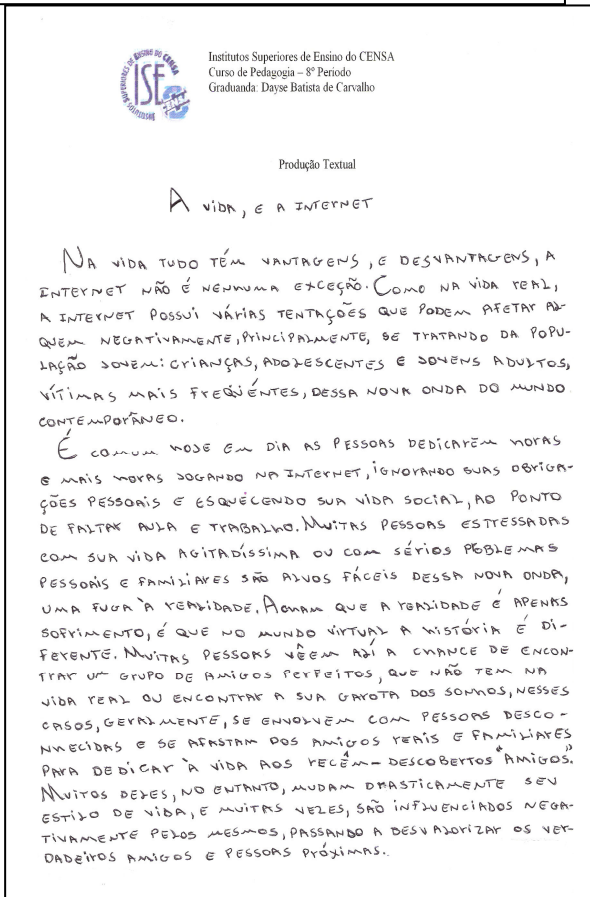 INSTITUTOS SUPERIORES DE ENSINO DO CENSA
ISE
CENSA
Institutos Superiores de Ensino do CENSA
Curso de Pedagogia – 8º Período
Graduanda: Dayse Batista de Carvalho
Produção Textual
A VIDA, E A INTERNET
NA VIDA TUDO TÊM VANTAGENS, E DESVANTAGENS, A
INTERNET NÃO É NENHUMA EXCEÇÃO. COMO NA VIDA REAL,
A INTERNET POSSUI VÁRIAS TENTAÇÕES QUE PODEM AFETAR AL-
QUEM NEGATIVAMENTE, PRINCIPALMENTE, SE TRATANDO DA POPU-
LAÇÃO JOVEM: CRIANÇAS, ADOLESCENTES E JOVENS ADULTOS,
VÍTIMAS MAIS FREQÜÉNTES, DESSA NOVA ONDA DO MUNDO
CONTEMPORÂNEO.
É COMUM HOJE EM DIA AS PESSOAS DEDICARÊM HORAS
E MAIS HORAS JOGANDO NA INTERNET, IGNORANDO SUAS OBRIGA-
ÇÕES PESSOAIS E ESQUÉCENDO SUA VIDA SOCIAL, AO PONTO
DE FALTAR AULA E TRABALHO. MUITAS PESSOAS ESTRESSADAS
COM SUA VIDA AGITADÍSSIMA OU COM SÉRIOS PROBLEMAS
PESSOAIS E FAMILIARES SÃO ALVOS FÁCEIS DESSA NOVA ONDA,
UMA FUGA À REALIDADE. ACHAM QUE A REALIDADE É APENAS
SOFRIMENTO, É QUE NO MUNDO VIRTUAL A HISTÓRIA É DI-
FERENTE. MUITAS PESSOAS VÊEM ALÍ A CHANCE DE ENCON-
TRAR UM GRUPO DE AMIGOS PERFEITOS, QUE NÃO TEM NA
VIDA REAL OU ENCONTRAR A SUA GAROTA DOS SONHOS, NESSES
CASOS, GERALMENTE, SE ENVOLVÉM COM PESSOAS DESCO-
NHECIDAS E SE AFASTAM DOS AMIGOS REAIS E FAMILIARES
PARA DEDICAR À VIDA AOS RECÉM-DESCOBERTOS "AMIGOS".
MUITOS DELES, NO ENTANTO, MUDAM DRASTICAMENTE SEU
ESTILO DE VIDA, E MUITAS VEZES, SÃO INFLUENCIADOS NEGA-
TIVAMENTE PELOS MESMOS, PASSANDO A DESVALORIZAR OS VER-
DADEIROS AMIGOS E PESSOAS PRÓXIMAS.